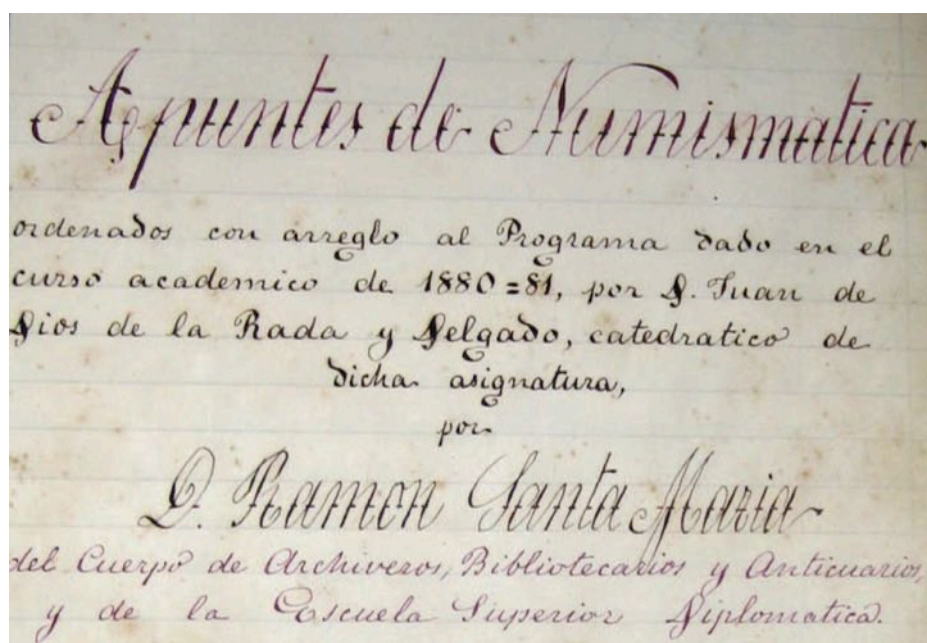 Apuntes de Numismatica
ordenados con arreglo al Programa dado en el
curso academico de 1880=81, por D. Juan de
Dios de la Rada y Delgado, catedratico de
dicha asignatura,
por
D. Ramon Santa Maria
del Cuerpo de Archiveros, Bibliotecarios y Anticuarios,
y de la Escuela Superior Diplomatica.